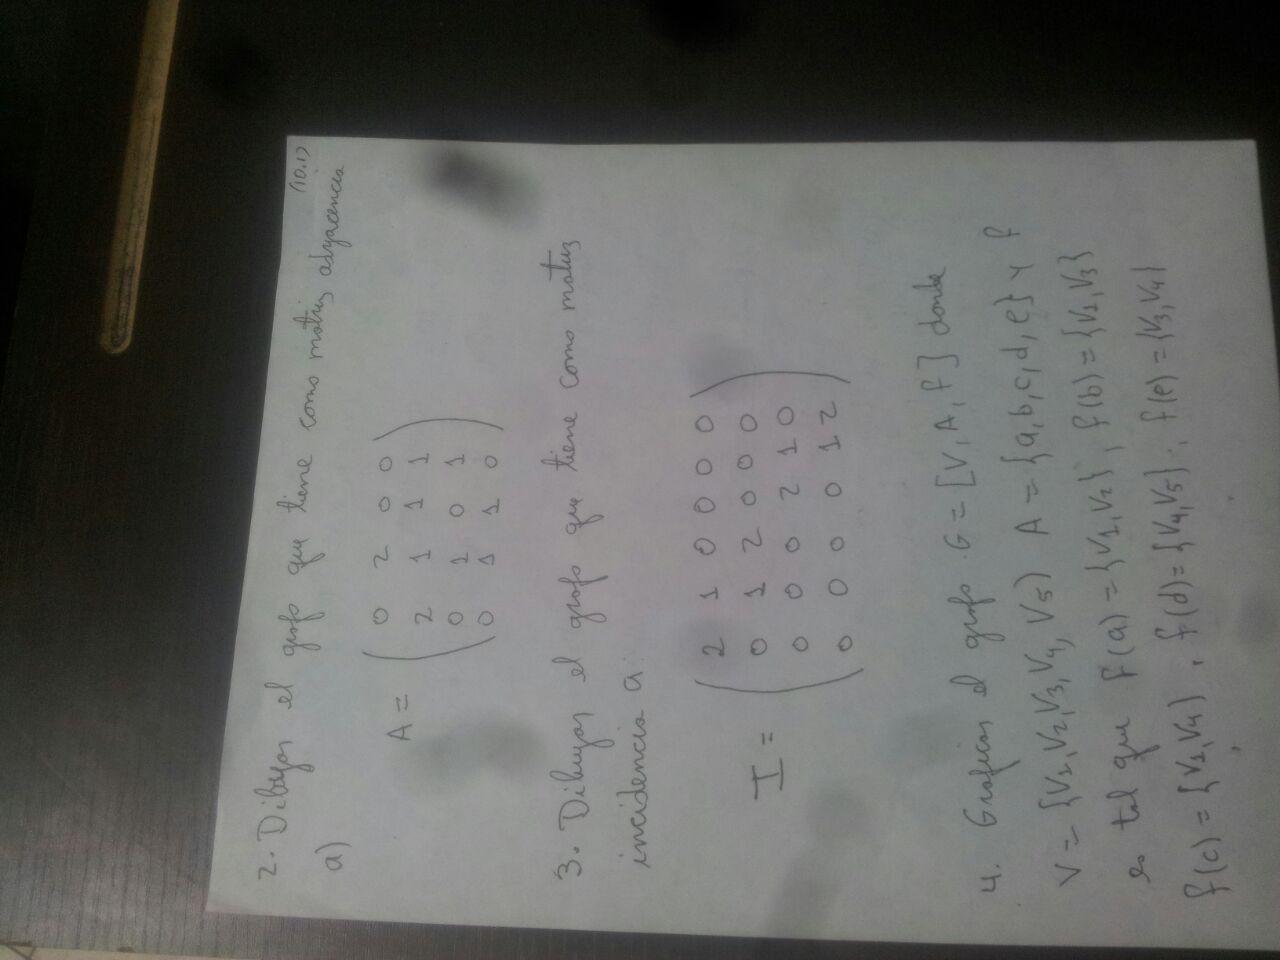 (10.1)
2. Dibujar el grafo que tiene como matriz adyacencia
a)
A = ( 0 2 0 0
2 1 1 1
0 1 0 1
0 1 1 0 )
3. Dibujar el grafo que tiene como matriz
incidencia a:
I = ( 2 1 0 0 0 0
0 1 2 0 0 0
0 0 0 2 1 0
0 0 0 0 1 2 )
4. Graficar el grafo G = [V, A, f] donde
V = {V1, V2, V3, V4, V5) A = {a, b, c, d, e} y f
es tal que f(a) = {V1, V2}, f(b) = {V2, V3}
f(c) = {V2, V4}, f(d) = {V4, V5}, f(e) = {V3, V4}